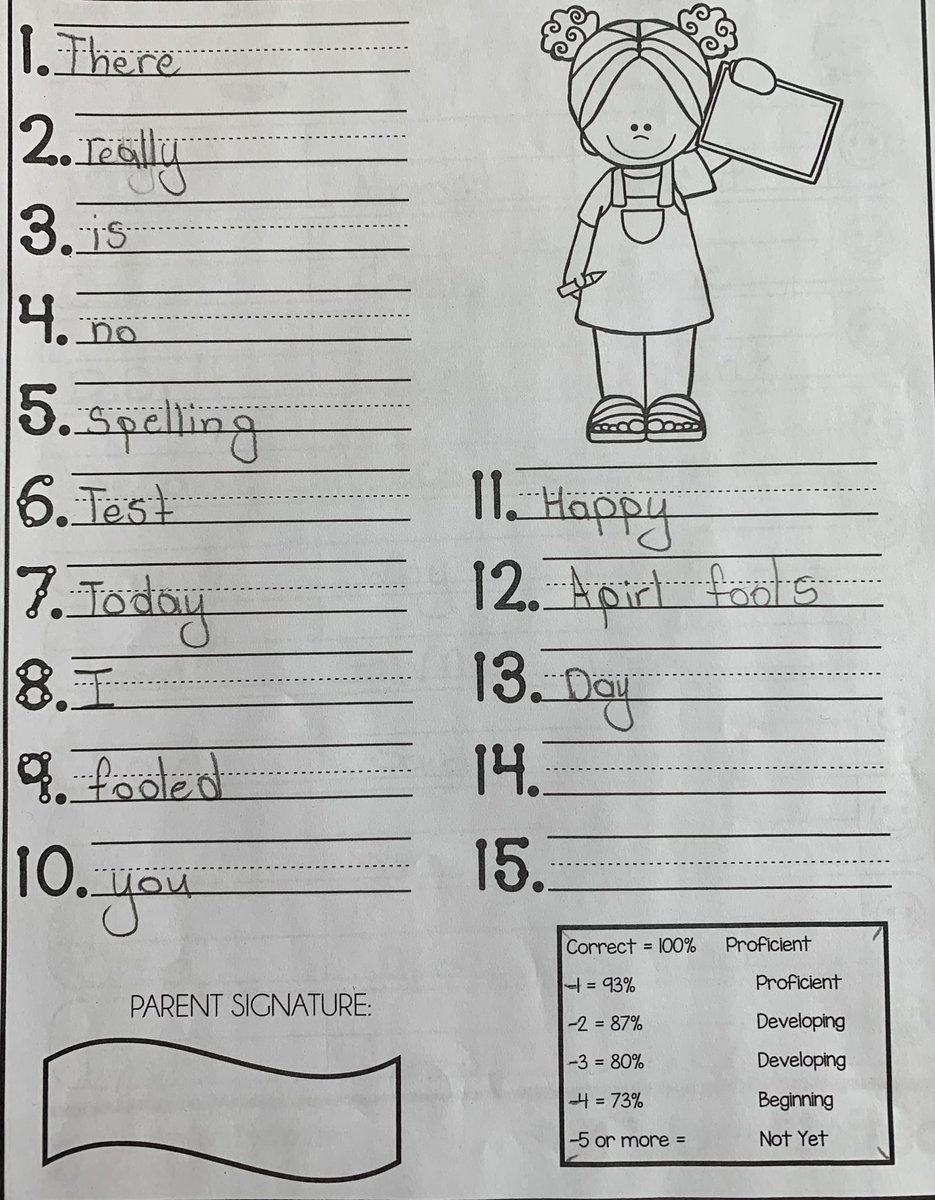 1. There
2. really
3. is
4. no
5. spelling
6. Test
7. Today
8. I
9. fooled
10. you
11. Happy
12. Apirl fools
13. Day
14.
15.
PARENT SIGNATURE:
Correct = 100% Proficient
-1 = 93% Proficient
-2 = 87% Developing
-3 = 80% Developing
-4 = 73% Beginning
-5 or more = Not Yet